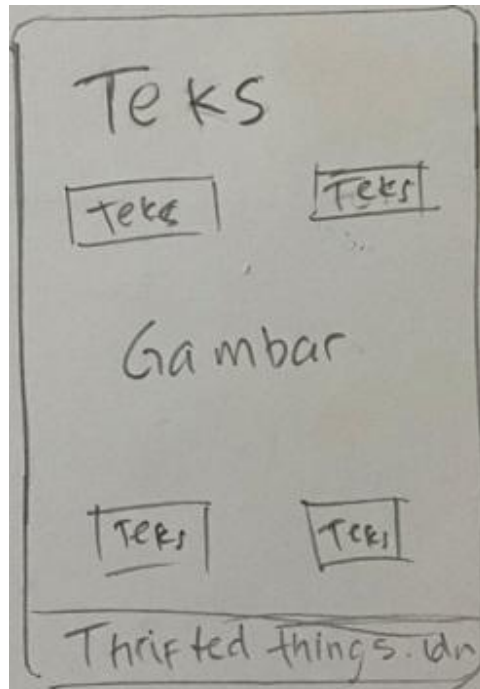 Teks
Teks Teks
Gambar
Teks Teks
Thrifted things.idn